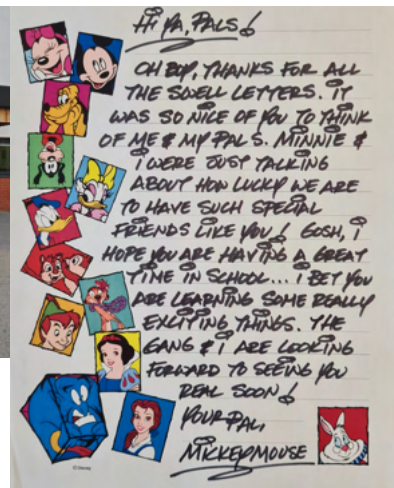 HI YA, PALS!
OH BOY, THANKS FOR ALL
THE SWELL LETTERS. IT
WAS SO NICE OF YOU TO THINK
OF ME & MY PALS. MINNIE &
I WERE JUST TALKING
ABOUT HOW LUCKY WE ARE
TO HAVE SUCH SPECIAL
FRIENDS LIKE YOU! GOSH, I
HOPE YOU ARE HAVING A GREAT
TIME IN SCHOOL... I BET YOU
ARE LEARNING SOME REALLY
EXCITING THINGS. THE
GANG & I ARE LOOKING
FORWARD TO SEEING YOU
REAL SOON!
YOUR PAL,
MICKEY MOUSE
© Disney